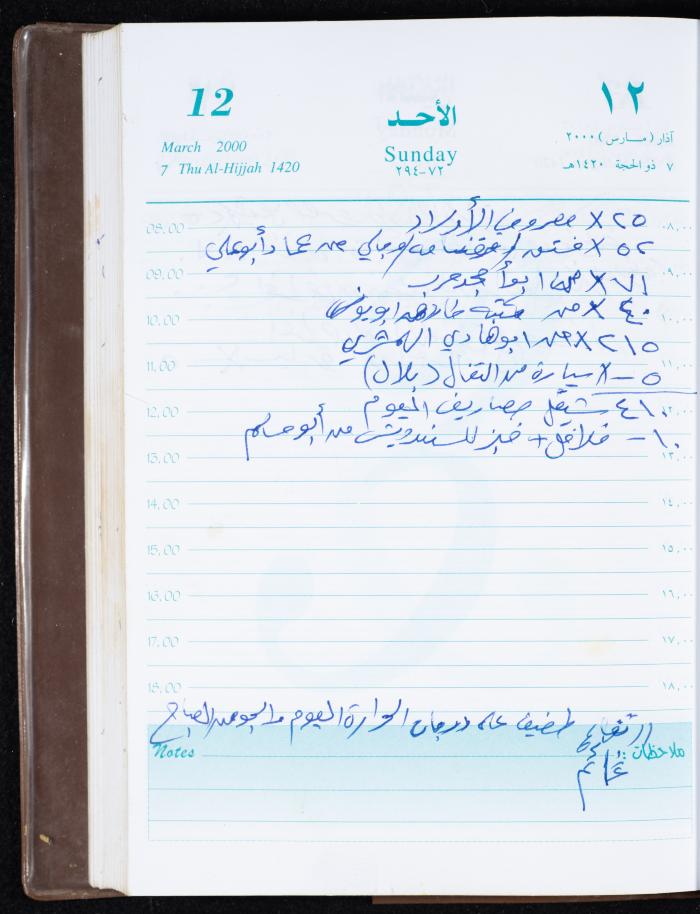 12
March 2000
7 Thu Al-Hijjah 1420
الأحد
Sunday
٧٢-٢٩٤
١٢
آذار (مارس) ٢٠٠٠
٧ ذو الحجة ١٤٢٠هـ
08.00 ٠٨,٠٠
٢٥ X مصروف الأولاد
٥٢ X فستق من عماد أبو علي
09.00 ٠٩,٠٠
٧١ X من ابو أمجد حرب
10.00 ١٠,٠٠
٤٠ X من مكتبة ابو يونس
٢١٥ X من ابو هادي
11.00 ١١,٠٠
٥ — X سيارة من النقال (بلال)
12.00 ١٢,٠٠
٤١٠ شيقل مصاريف اليوم
١٠ — فلافل + خبز للسندويش من أبو مسلم
13.00 ١٣,٠٠
14.00 ١٤,٠٠
15.00 ١٥,٠٠
16.00 ١٦,٠٠
17.00 ١٧,٠٠
18.00 ١٨,٠٠
ارتفاع طفيف على درجات الحرارة اليوم والجو من الصباح
غائم
Notes ملاحظات: